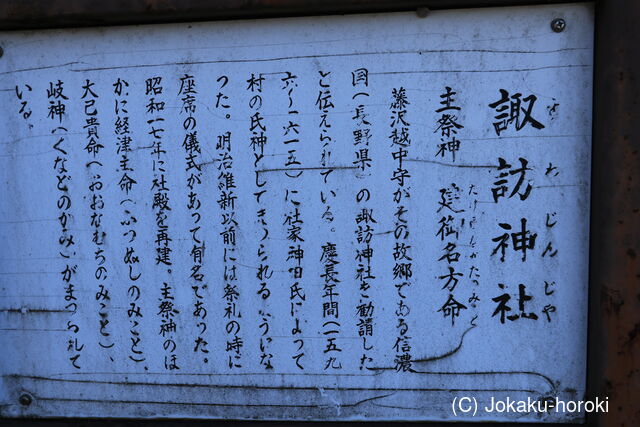 諏訪神社
すわじんじゃ
主祭神 建御名方命
たけみなかたのみこと
藤沢越中守がその故郷である信濃
国(長野県)の諏訪神社を勧請した
と伝えられている。慶長年間(一五九
六〜一六一五)に社家神田氏によって
村の氏神としてまつられるようにな
った。明治維新以前には祭礼の時に
座席の儀式があって有名であった。
昭和一七年に社殿を再建。主祭神のほ
かに経津主命(ふつぬしのみこと)、
大己貴命(おおなむちのみこと)、
岐神(くなどのかみ)がまつられて
いる。
(C) Jokaku-horoki